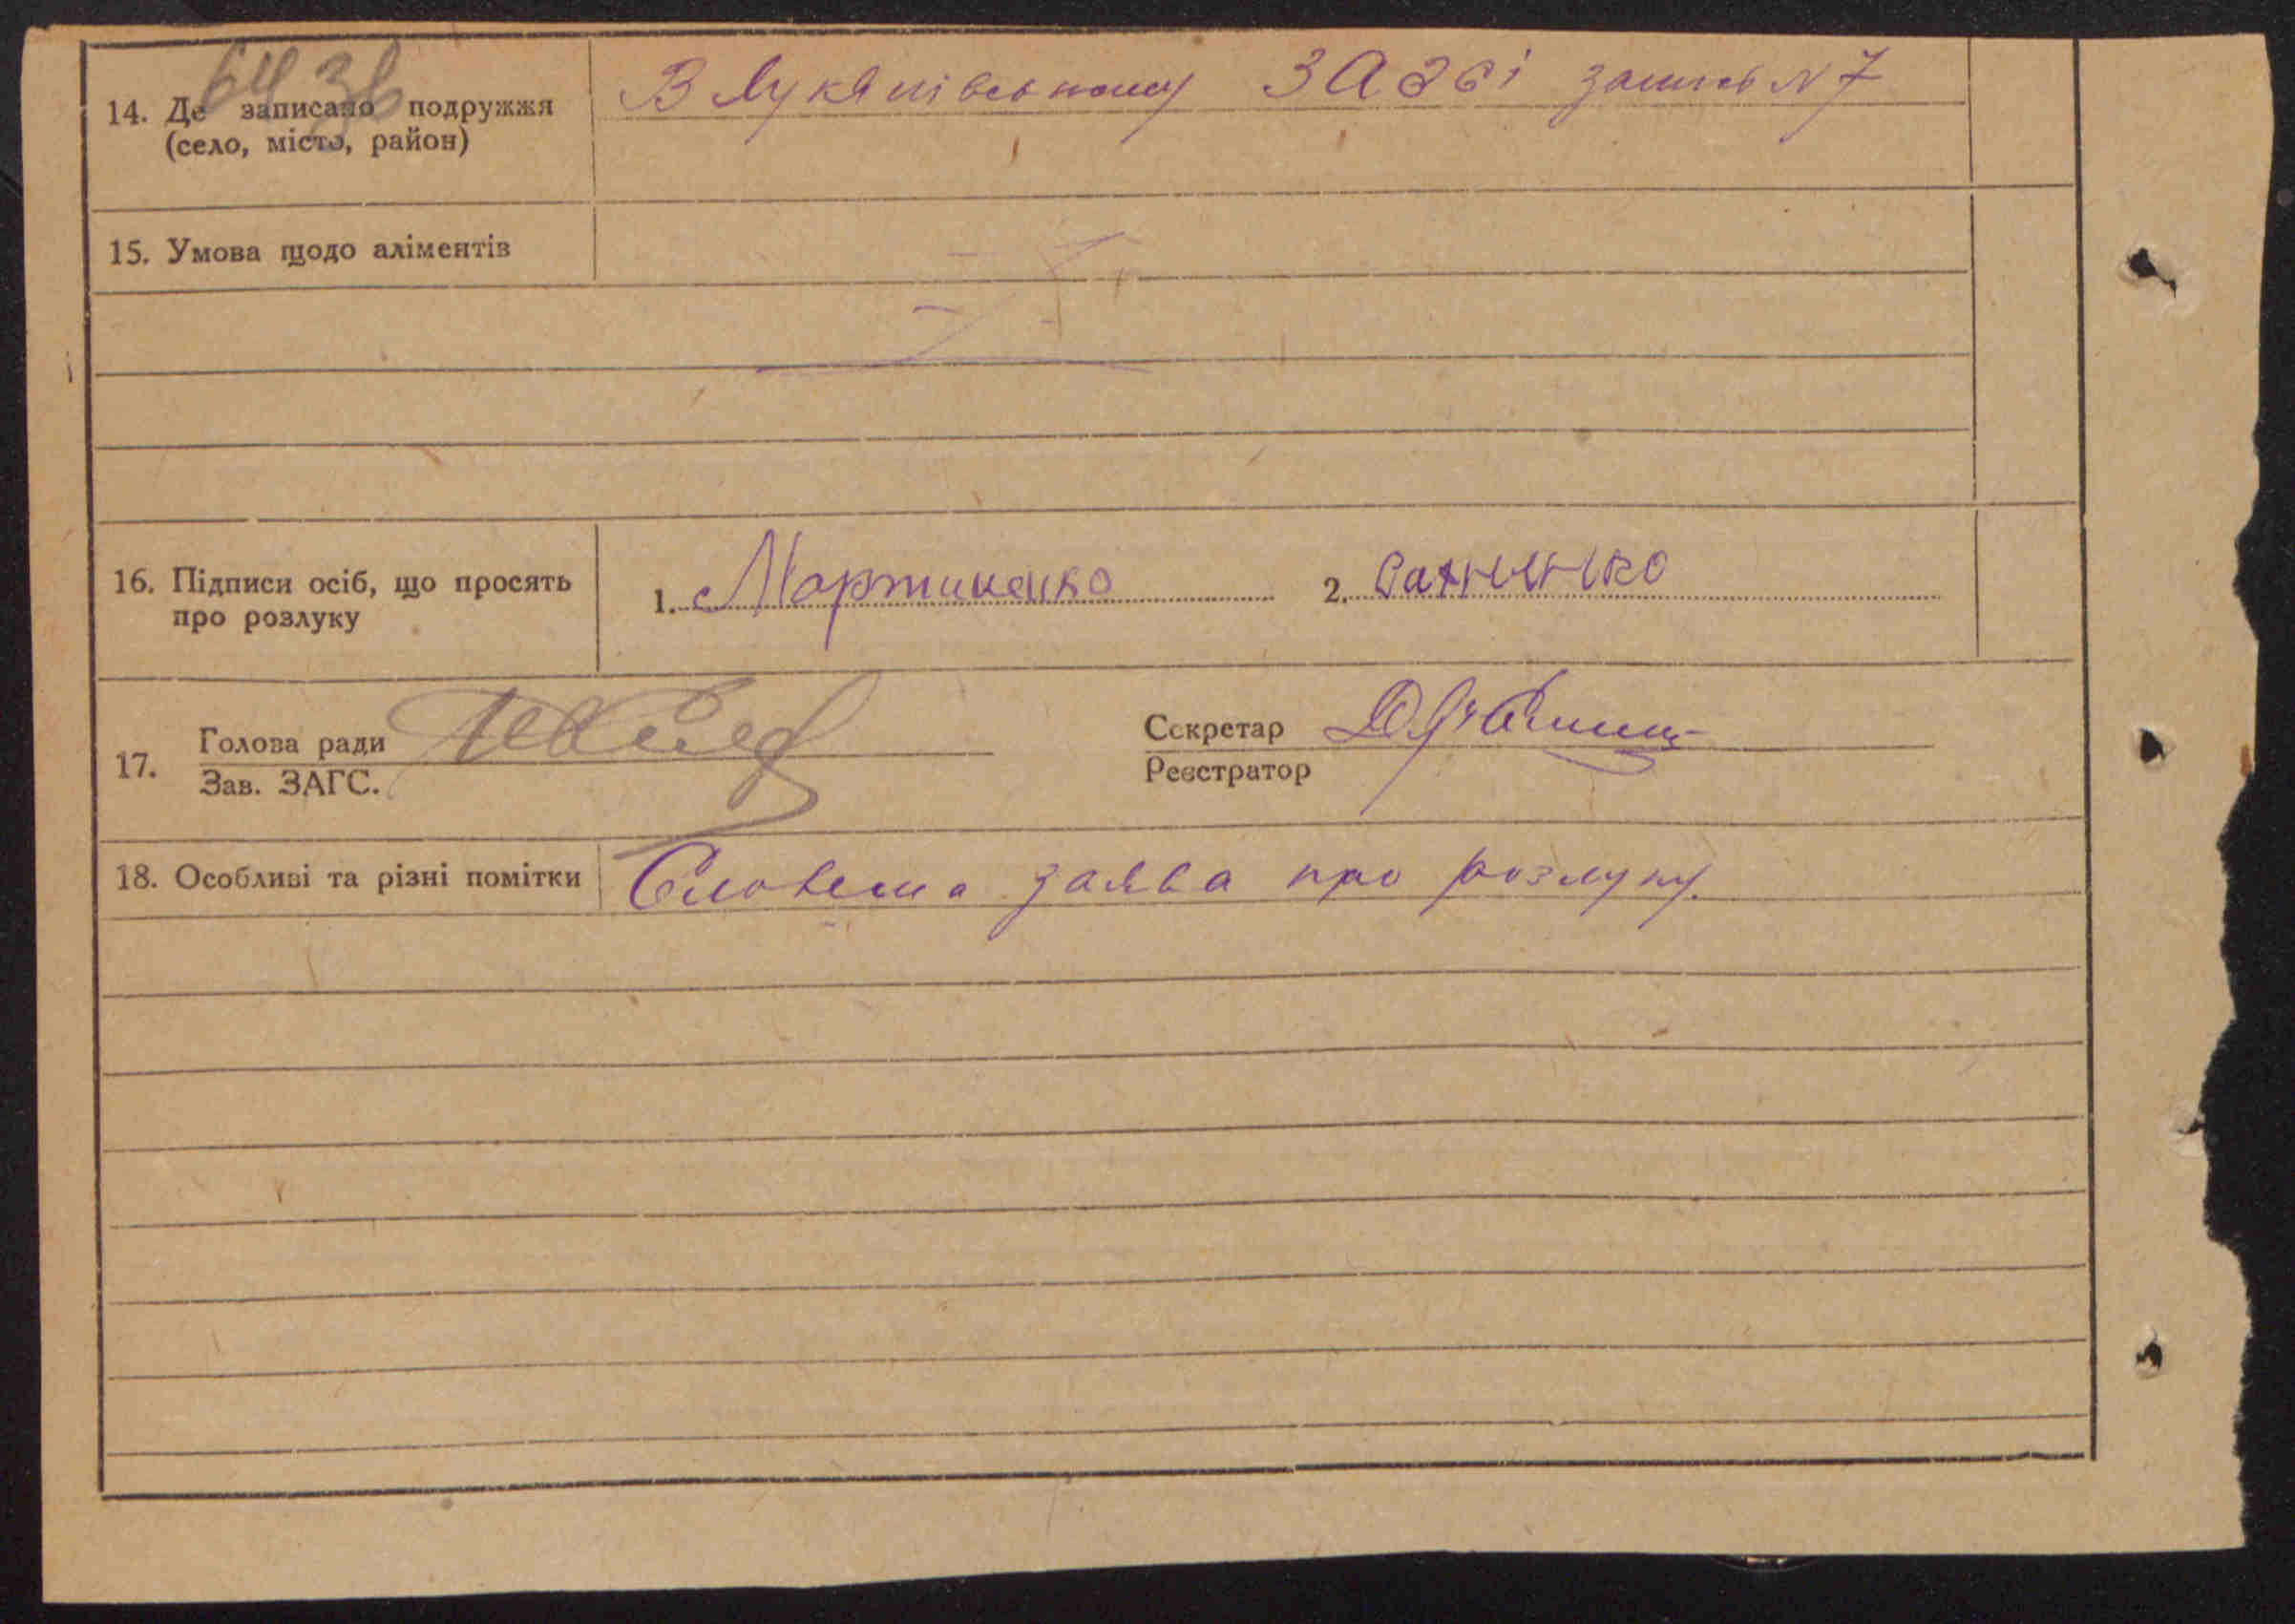 6436
14. Де записано подружжя
(село, місто, район)
В Лукянівському ЗАГСі запись N 7
15. Умова щодо аліментів
16. Підписи осіб, що просять
про розлуку
1. Мартиненко 2.
17. Голова ради
Зав. ЗАГС.
Секретар
Реєстратор
18. Особливі та різні помітки
Словесна заява про розлуку.